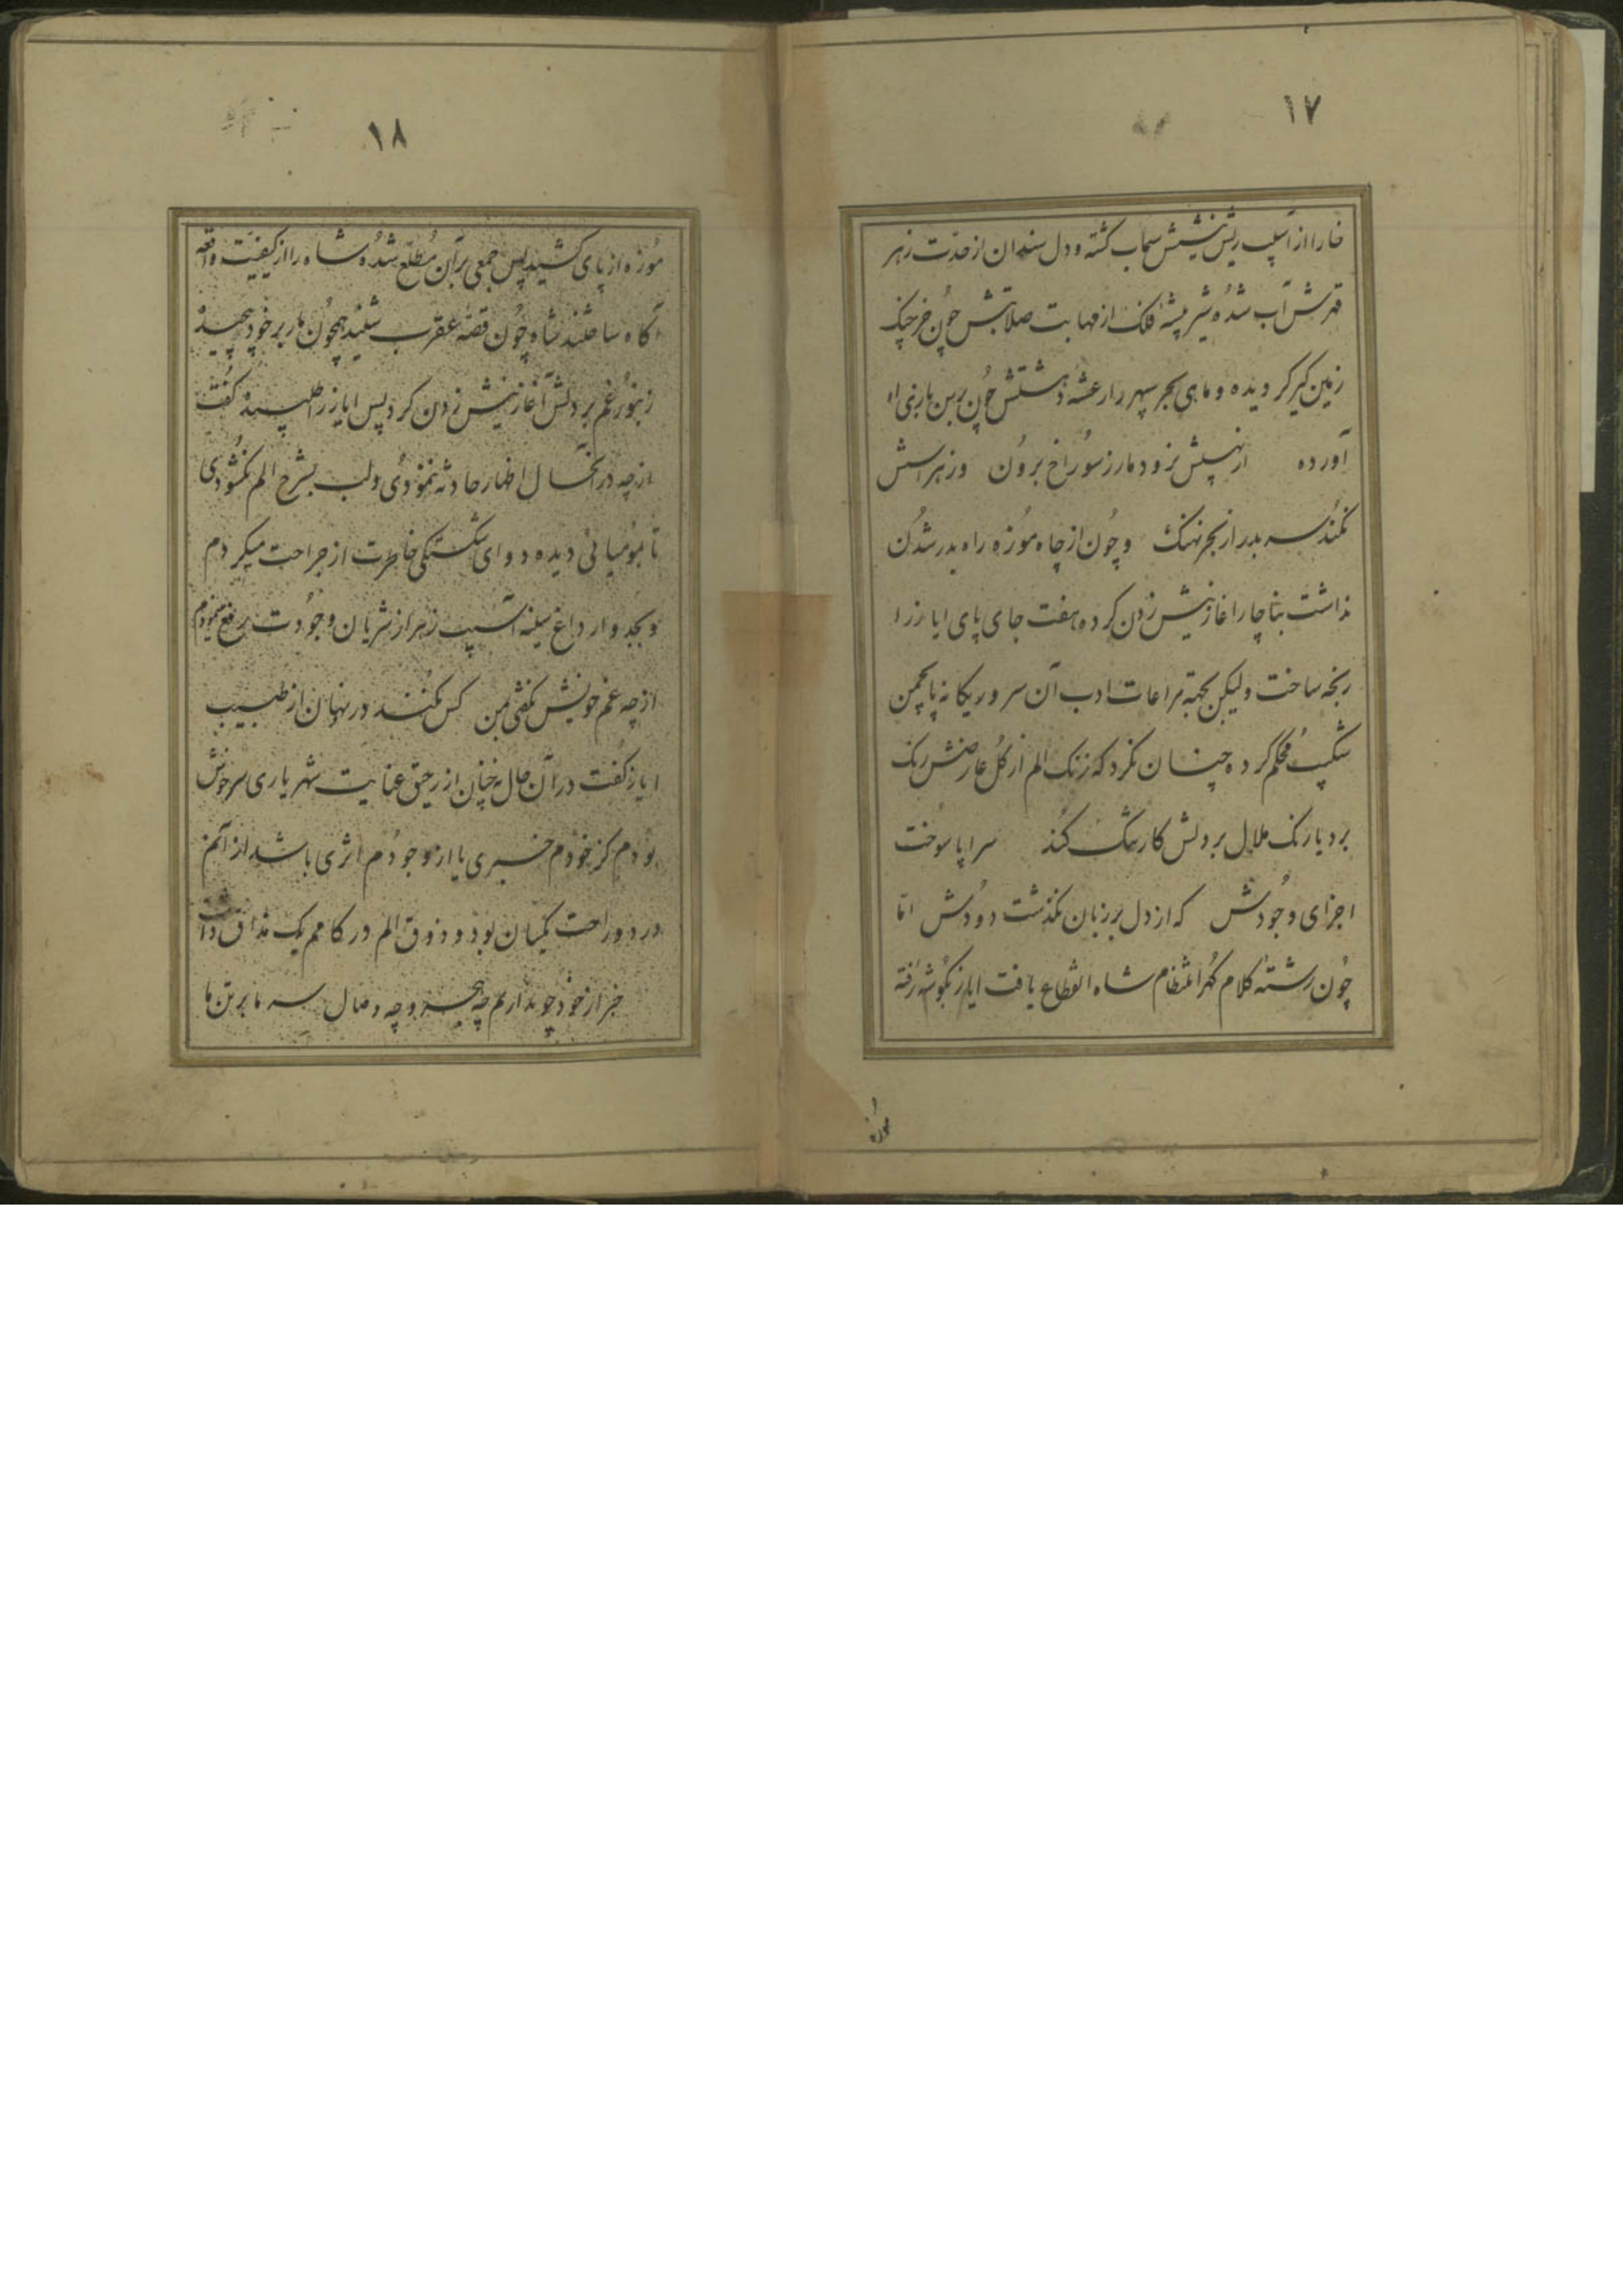 ۱۷
خارا از آسیب ریش نیشش سحاب گشته و دل سندان از حدّت زهر
قهرش آب شده شیر بیشهٔ فلک از مهابت صلابتش چون خرچنگ
زمین گیر گردیده و ماهی بحر سپهر را رعشهٔ دهشتش چون
آورده از نهیبش نزود مار ز سوراخ برون وز هراسش
نکند سر بدر از بحر نهنگ و چون از چاه موزه راه بدر شدن
نداشت بناچار آغاز نیش زدن کرده هفت جای پای ایاز را
رنجه ساخت ولیکن بجهة مراعات ادب آن سرو ریکانه پا بچمن
شکیب محکم کرده چنان نکرد که زنک الم از کل عارضش رنک
برد یا رنک ملال بر دلش کار سنک کند سراپا سوخت
اجزای وجودش که از دل بر زبان نکذشت دودش امّا
چون رشتهٔ کلام کهر انتظام شاه انقطاع یافت ایاز بکوشه رفته
موزه
۱۸
موزه از پای کشید پس جمعی بر آن مطّلع شده شاه را از کیفیّت واقعه
آکاه ساختند شاه چون قصّهٔ عقرب شنید همچون مار بر خود پیچید
زنبور غم بر دلش آغاز نیش زدن کرد پس ایاز را طلبیده کفت
از چه در آنحال اظهار حادثه ننمودی و لب بشرح الم نکشودی
تا بمومیائی دیده دوای شکستکی خاطرت از جراحت میکردم
و بجدوار داغ سینه آسیب زهر از شریان وجودت رفع مینمودم
از چه غم خویش نکفتی بمن کس نکند درد نهان از طبیب
ایاز کفت در آن حال نه چنان از رحیق عنایت شهریاری سرخوش
بودم کز خودم خبری یا از وجودم اثری باشد از آنم
درد و راحت یکسان بود و ذوق الم در کامم یک مذاق داشت
خبر از خود چو ندارم چه هجر و چه وصال سر ما بر تن ما